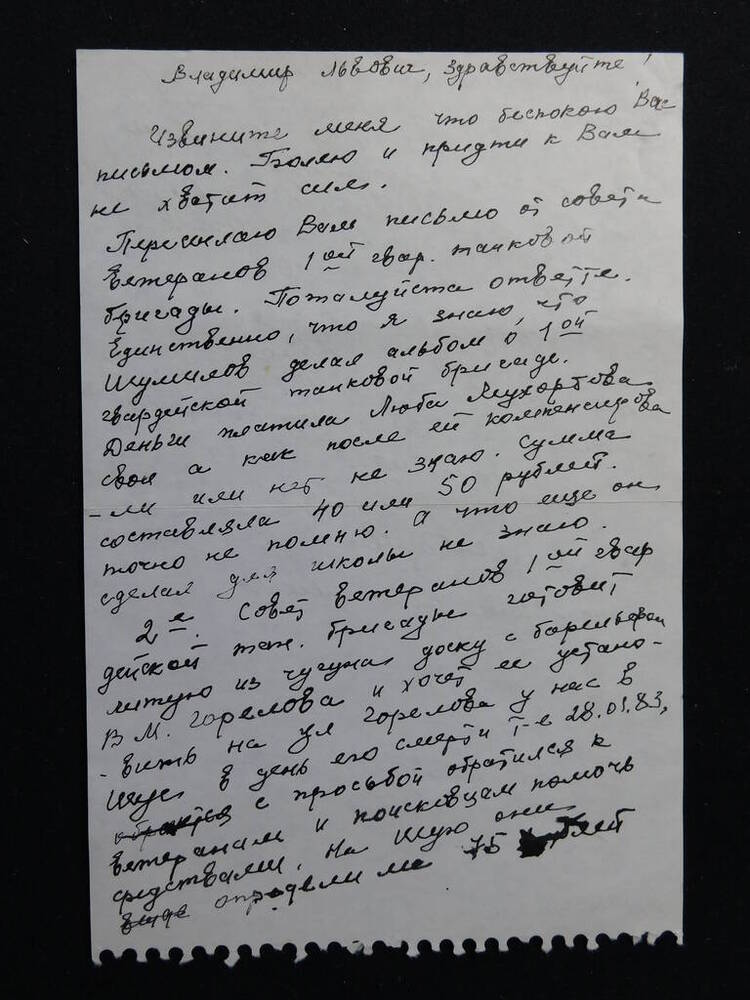 Владимир Львович, здравствуйте!
Извините меня что беспокою Вас
письмом. Болею и придти к Вам
не хватит сил.
Пересылаю Вам письмо от совета
ветеранов 1ой гвар. танковой
бригады. Пожалуйста ответте.
Единственно, что я знаю, что
Шумилов делал альбом о 1ой
гвардейской танковой бригаде.
Деньги платила Люба Мухортова
свои а как после ей компенсирова
-ли или нет не знаю. Сумма
составляла 40 или 50 рублей.
точно не помню. А что еще он
сделал для школы не знаю.
2е. Совет ветеранов 1ой гвар
дейской тан. бригады готовит
литую из чугуна доску с барельефом
В.М. Горелова и хочет ее устано-
-вить на ул Горелова у нас в
Шуе в день его смерти т-е 28.01.83,
с просьбой обратился к
ветеранам и поисковцам помочь
средствами. На Шую они
определили 75 рублей